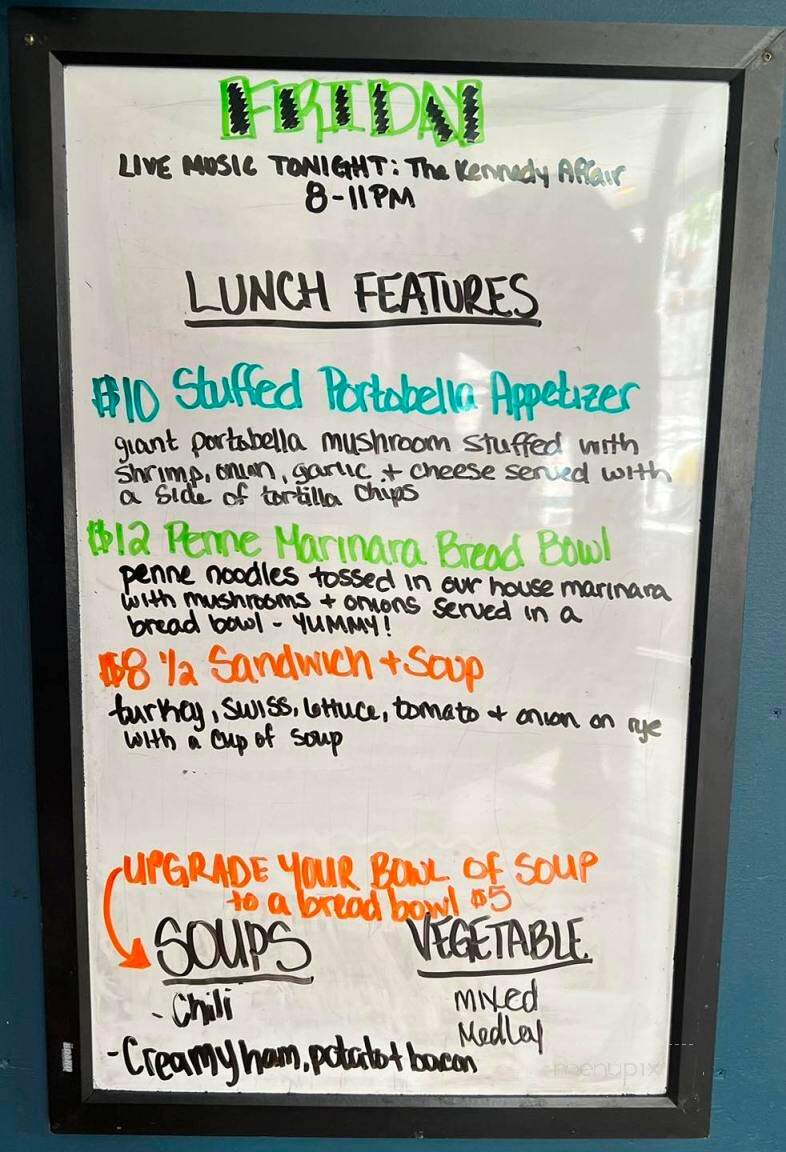 FRIDAY
LIVE MUSIC TONIGHT: The Kennedy Affair
8-11PM
LUNCH FEATURES
$10 Stuffed Portabella Appetizer
giant portabella mushroom stuffed with
shrimp, onion, garlic + cheese served with
a side of tortilla chips
$12 Penne Marinara Bread Bowl
penne noodles tossed in our house marinara
with mushrooms + onions served in a
bread bowl - YUMMY!
$8 1/2 Sandwich + Soup
turkey, swiss, lettuce, tomato + onion on rye
with a cup of soup
UPGRADE YOUR BOWL OF SOUP
to a bread bowl $5
SOUPS
- Chili
- Creamy ham, potato + bacon
VEGETABLE
mixed
Medley
menupix